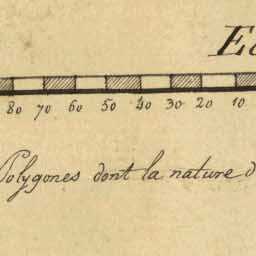 80 70 60 50 40 30 20 10
Polygones dont la nature d